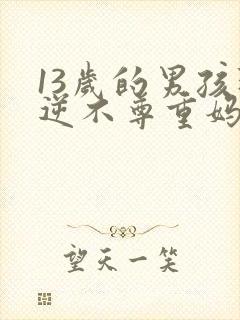 13岁的男孩
逆不尊重妈
望天一笑